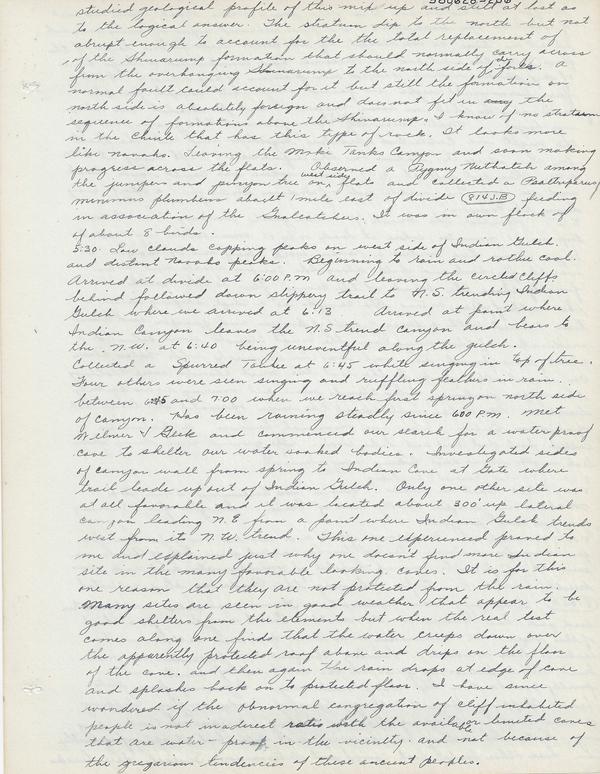 studied geological profile of this mix up and still at lost as
to the logical answer. The stratum dip to the north but not
abrupt enough to account for the the total replacement of
of the Shinarump formation that should normally carry across
from the overhanging Shinarump to the north side of forks. A
normal fault could account for it but still the formation on
north side is absolutely foreign and does not fit in the
sequence of formations above the Shinarump. I know of no stratum
in the Chinle that has this type of rock. It looks more
like navaho. Leaving the Moki Tanks Canyon and soon making
progress across the flats. Observed a Pygmy Nuthatch among
the junipers and pinyon tree on west side flats and collected a Psaltriparus
minimus plumbeus about 1 mile east of divide (8143.B) feeding
in association of the Gnatcatchers. It was in own flock of
of about 8 birds.
5:30 Low clouds capping peaks on west side of Indian Gulch.
and distant Navaho peaks. Beginning to rain and rather cool.
Arrived at divide at 6:00 P.M and leaving the circled cliffs
behind followed down slippery trail to N.S. trending Indian
Gulch where we arrived at 6:13 Arrived at point where
Indian Canyon leaves the N.S trend canyon and bears to
the N.W. at 6:40 being uneventful along the gulch.
Collected a Spurred Towhee at 6:45 while singing in top of tree.
Four others were seen singing and ruffling feathers in rain.
between 6:45 and 7:00 when we reach first spring on north side
of canyon. Has been raining steadily since 600 P.M. Met
Wilmer & and commenced our search for a water proof
cave to shelter our water soaked bodies. Investigated sides
of canyon wall from spring to Indian Cave at Gate where
trail leads up out of Indian Gulch. Only one other site was
at all favorable and it was located about 300' up lateral
canyon leading N.E from a point where Indian Gulch trends
west from its N.W. trend. This one experienced proved to
me and explained just why one doesn't find more Indian
site in the many favorable looking caves. It is for this
one reason that they are not protected from the rain.
Many sites are seen in good weather that appear to be
good shelters from the elements but when the real test
comes along one finds that the water creeps down over
the apparently protected roof above and drips on the floor
of the cave. and then again the rain drops at edge of cave
and splashes back on to protected floor. I have since
wondered if the abnormal congregation of cliff inhabited
people is not in direct ratio with the available or limited caves
that are water-proof in the vicinity and not because of
the gregarious tendencies of these ancient peoples.